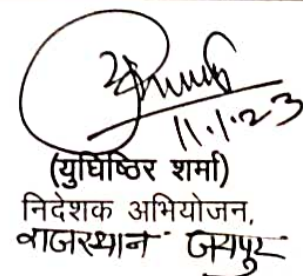 11.1.23
(युधिष्ठिर शर्मा)
निदेशक अभियोजन,
राजस्थान जयपुर